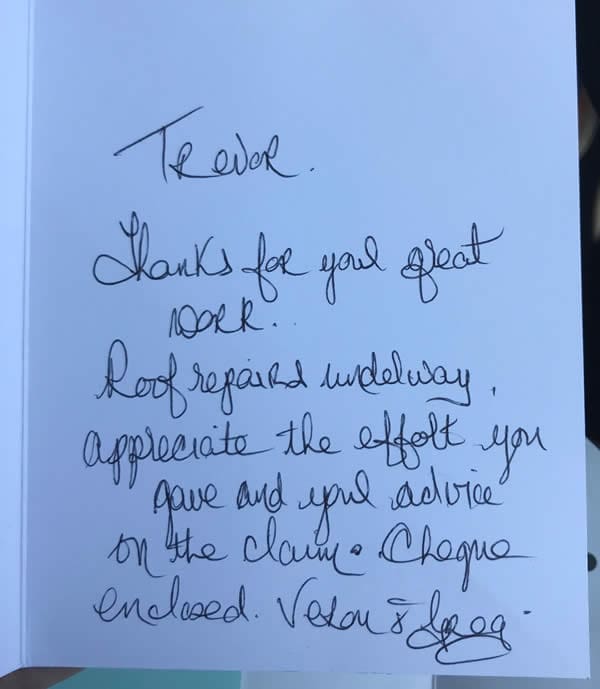 Trevor.
Thanks for your great
work..
Roof repairs underway.
appreciate the effort you
gave and your advice
on the claim. Cheque
enclosed. &